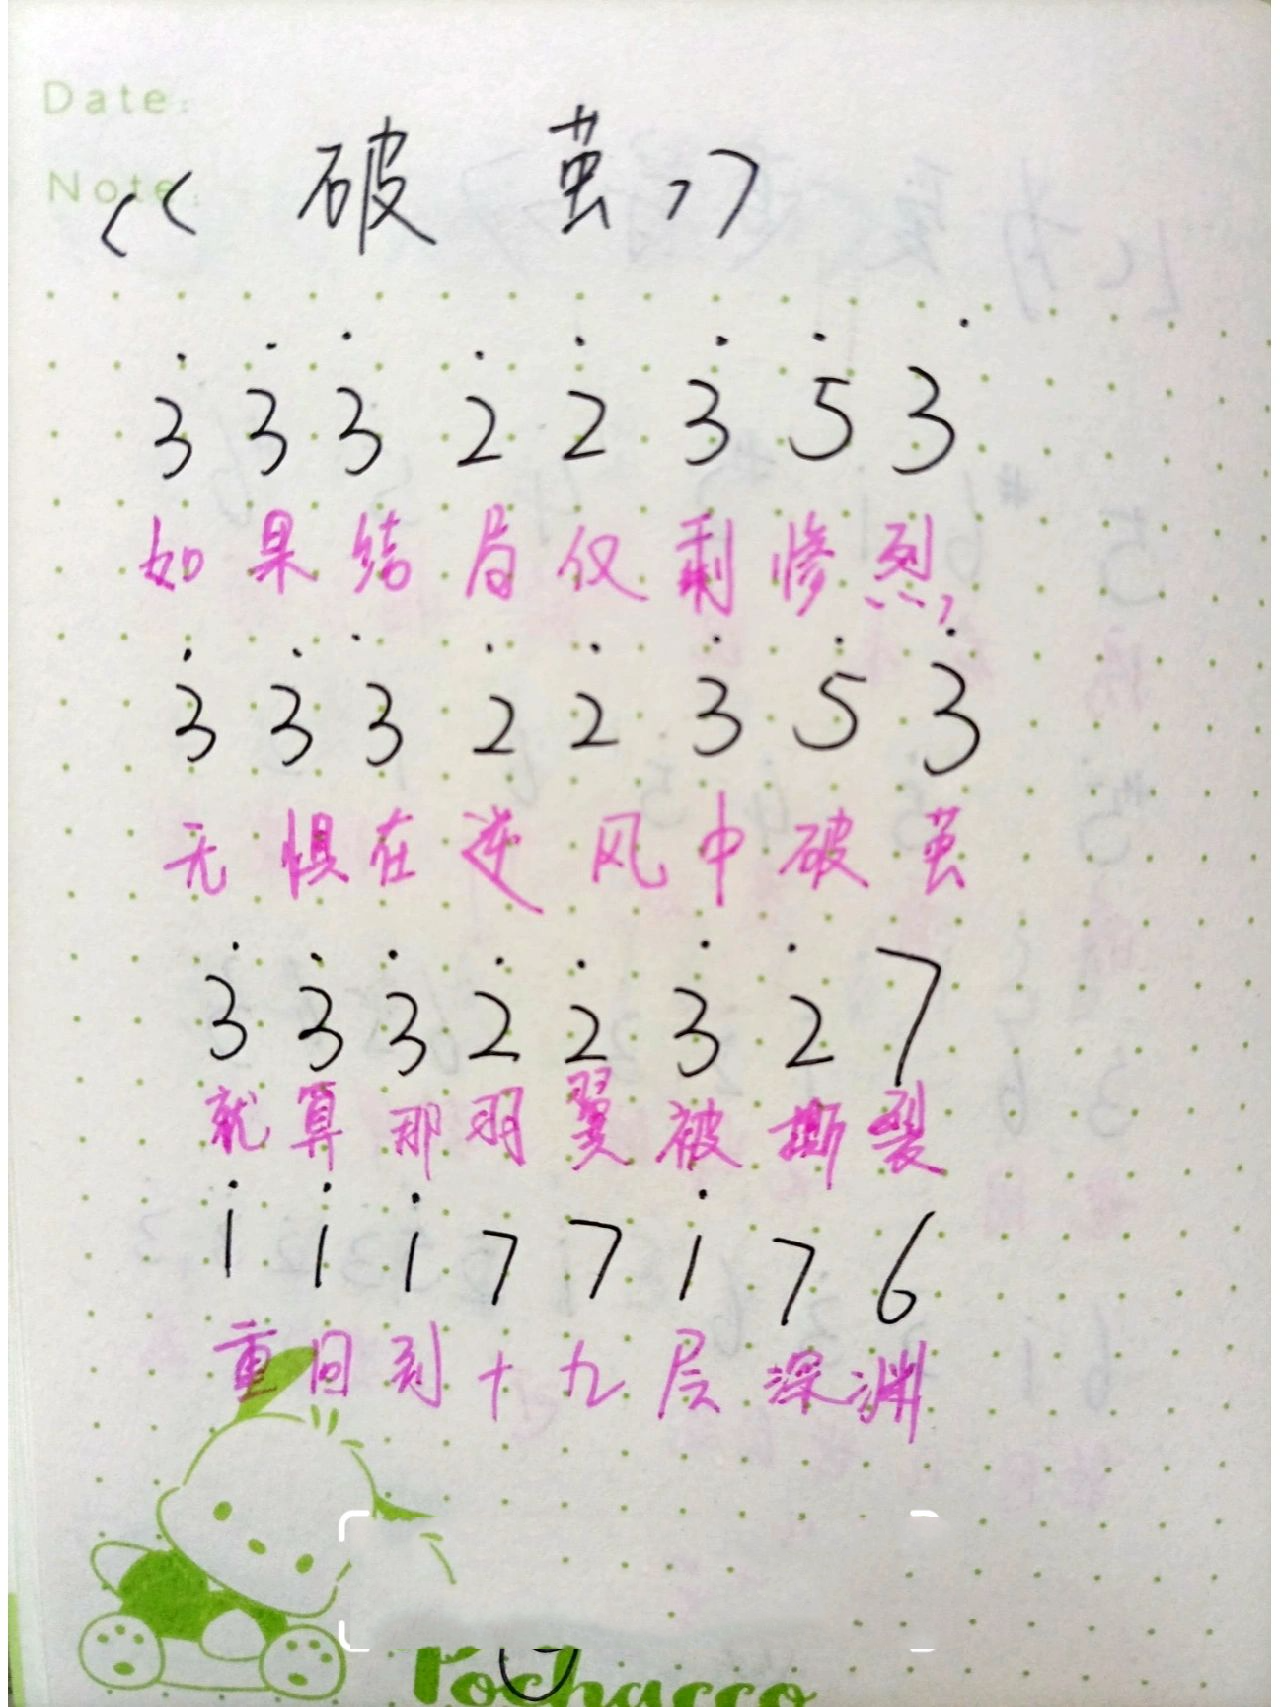 Date:
Note:
《破茧》
3̇ 3̇ 3̇ 2̇ 2̇ 3̇ 5̇ 3̇
如果结局仅剩惨烈,
3̇ 3̇ 3̇ 2̇ 2̇ 3̇ 5̇ 3̇
无惧在逆风中破茧
3̇ 3̇ 3̇ 2̇ 2̇ 3̇ 2̇ 7
就算那羽翼被撕裂
1̇ 1̇ 1̇ 7 7 1̇ 7 6
重回到十九层深渊
Pochacco